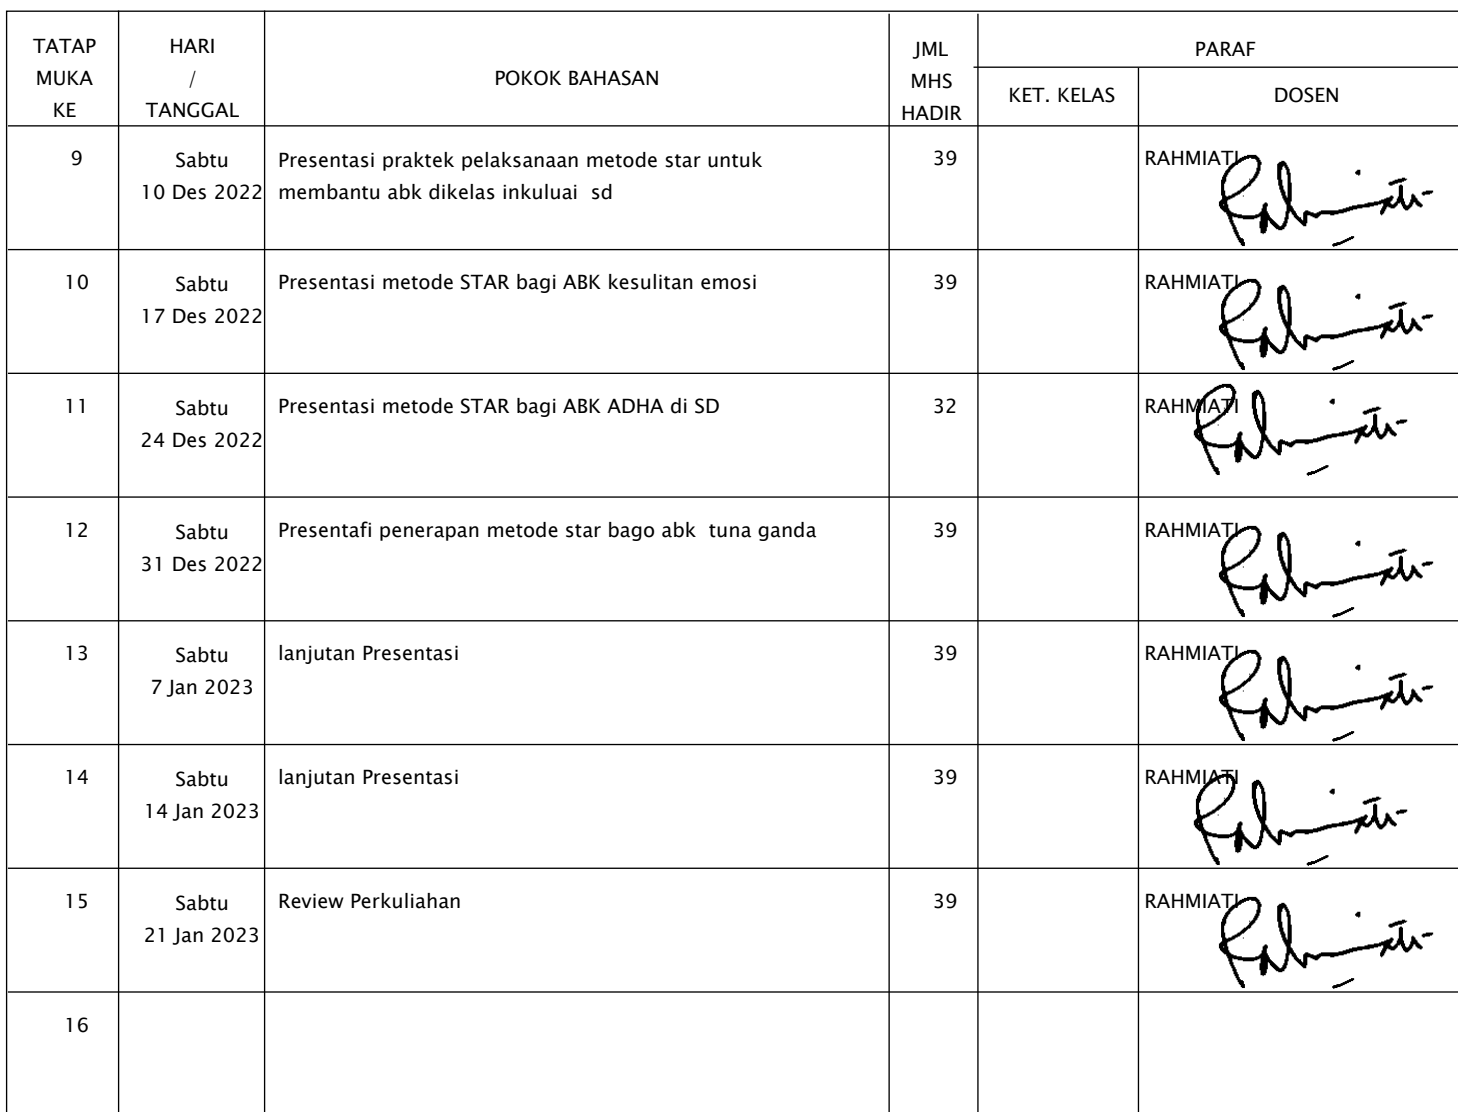 TATAP MUKA KE
HARI / TANGGAL
POKOK BAHASAN
JML MHS HADIR
PARAF
KET. KELAS
DOSEN
9
Sabtu
10 Des 2022
Presentasi praktek pelaksanaan metode star untuk
membantu abk dikelas inkuluai sd
39
RAHMIATI
10
Sabtu
17 Des 2022
Presentasi metode STAR bagi ABK kesulitan emosi
39
RAHMIATI
11
Sabtu
24 Des 2022
Presentasi metode STAR bagi ABK ADHA di SD
32
RAHMIATI
12
Sabtu
31 Des 2022
Presentafi penerapan metode star bago abk tuna ganda
39
RAHMIATI
13
Sabtu
7 Jan 2023
lanjutan Presentasi
39
RAHMIATI
14
Sabtu
14 Jan 2023
lanjutan Presentasi
39
RAHMIATI
15
Sabtu
21 Jan 2023
Review Perkuliahan
39
RAHMIATI
16